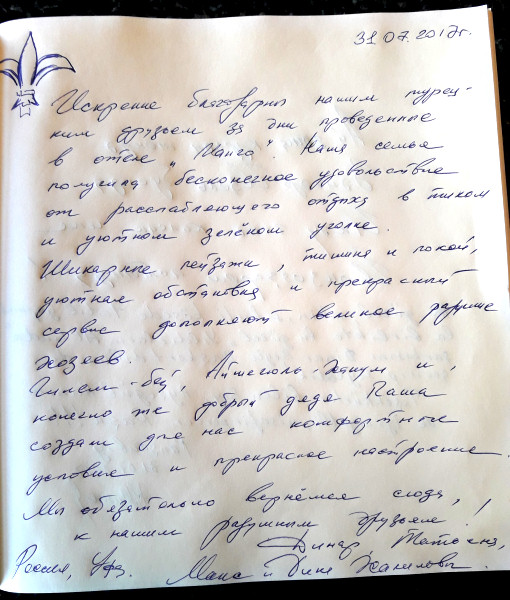 31.07.2017г.
Искренне благодарны нашим турец-
ким друзьям за дни проведенные
в отеле „Манго". Наша семья
получила бесконечное удовольствие
от расслабляющего отдыха в тихом
и уютном зелёном уголке.
Шикарные пейзажи, тишина и покой,
уютная обстановка и прекрасный
сервис дополняют великое радушие
хозяев.
-бей, Айшегюль-ханум и,
конечно же добрый дядя Паша
создали для нас комфортные
условия и прекрасное настроение.
Мы обязательно вернёмся сюда,
к нашим радушным друзьям!
Динар,
Россия, Уфа. Макс и Дина Халиловы.